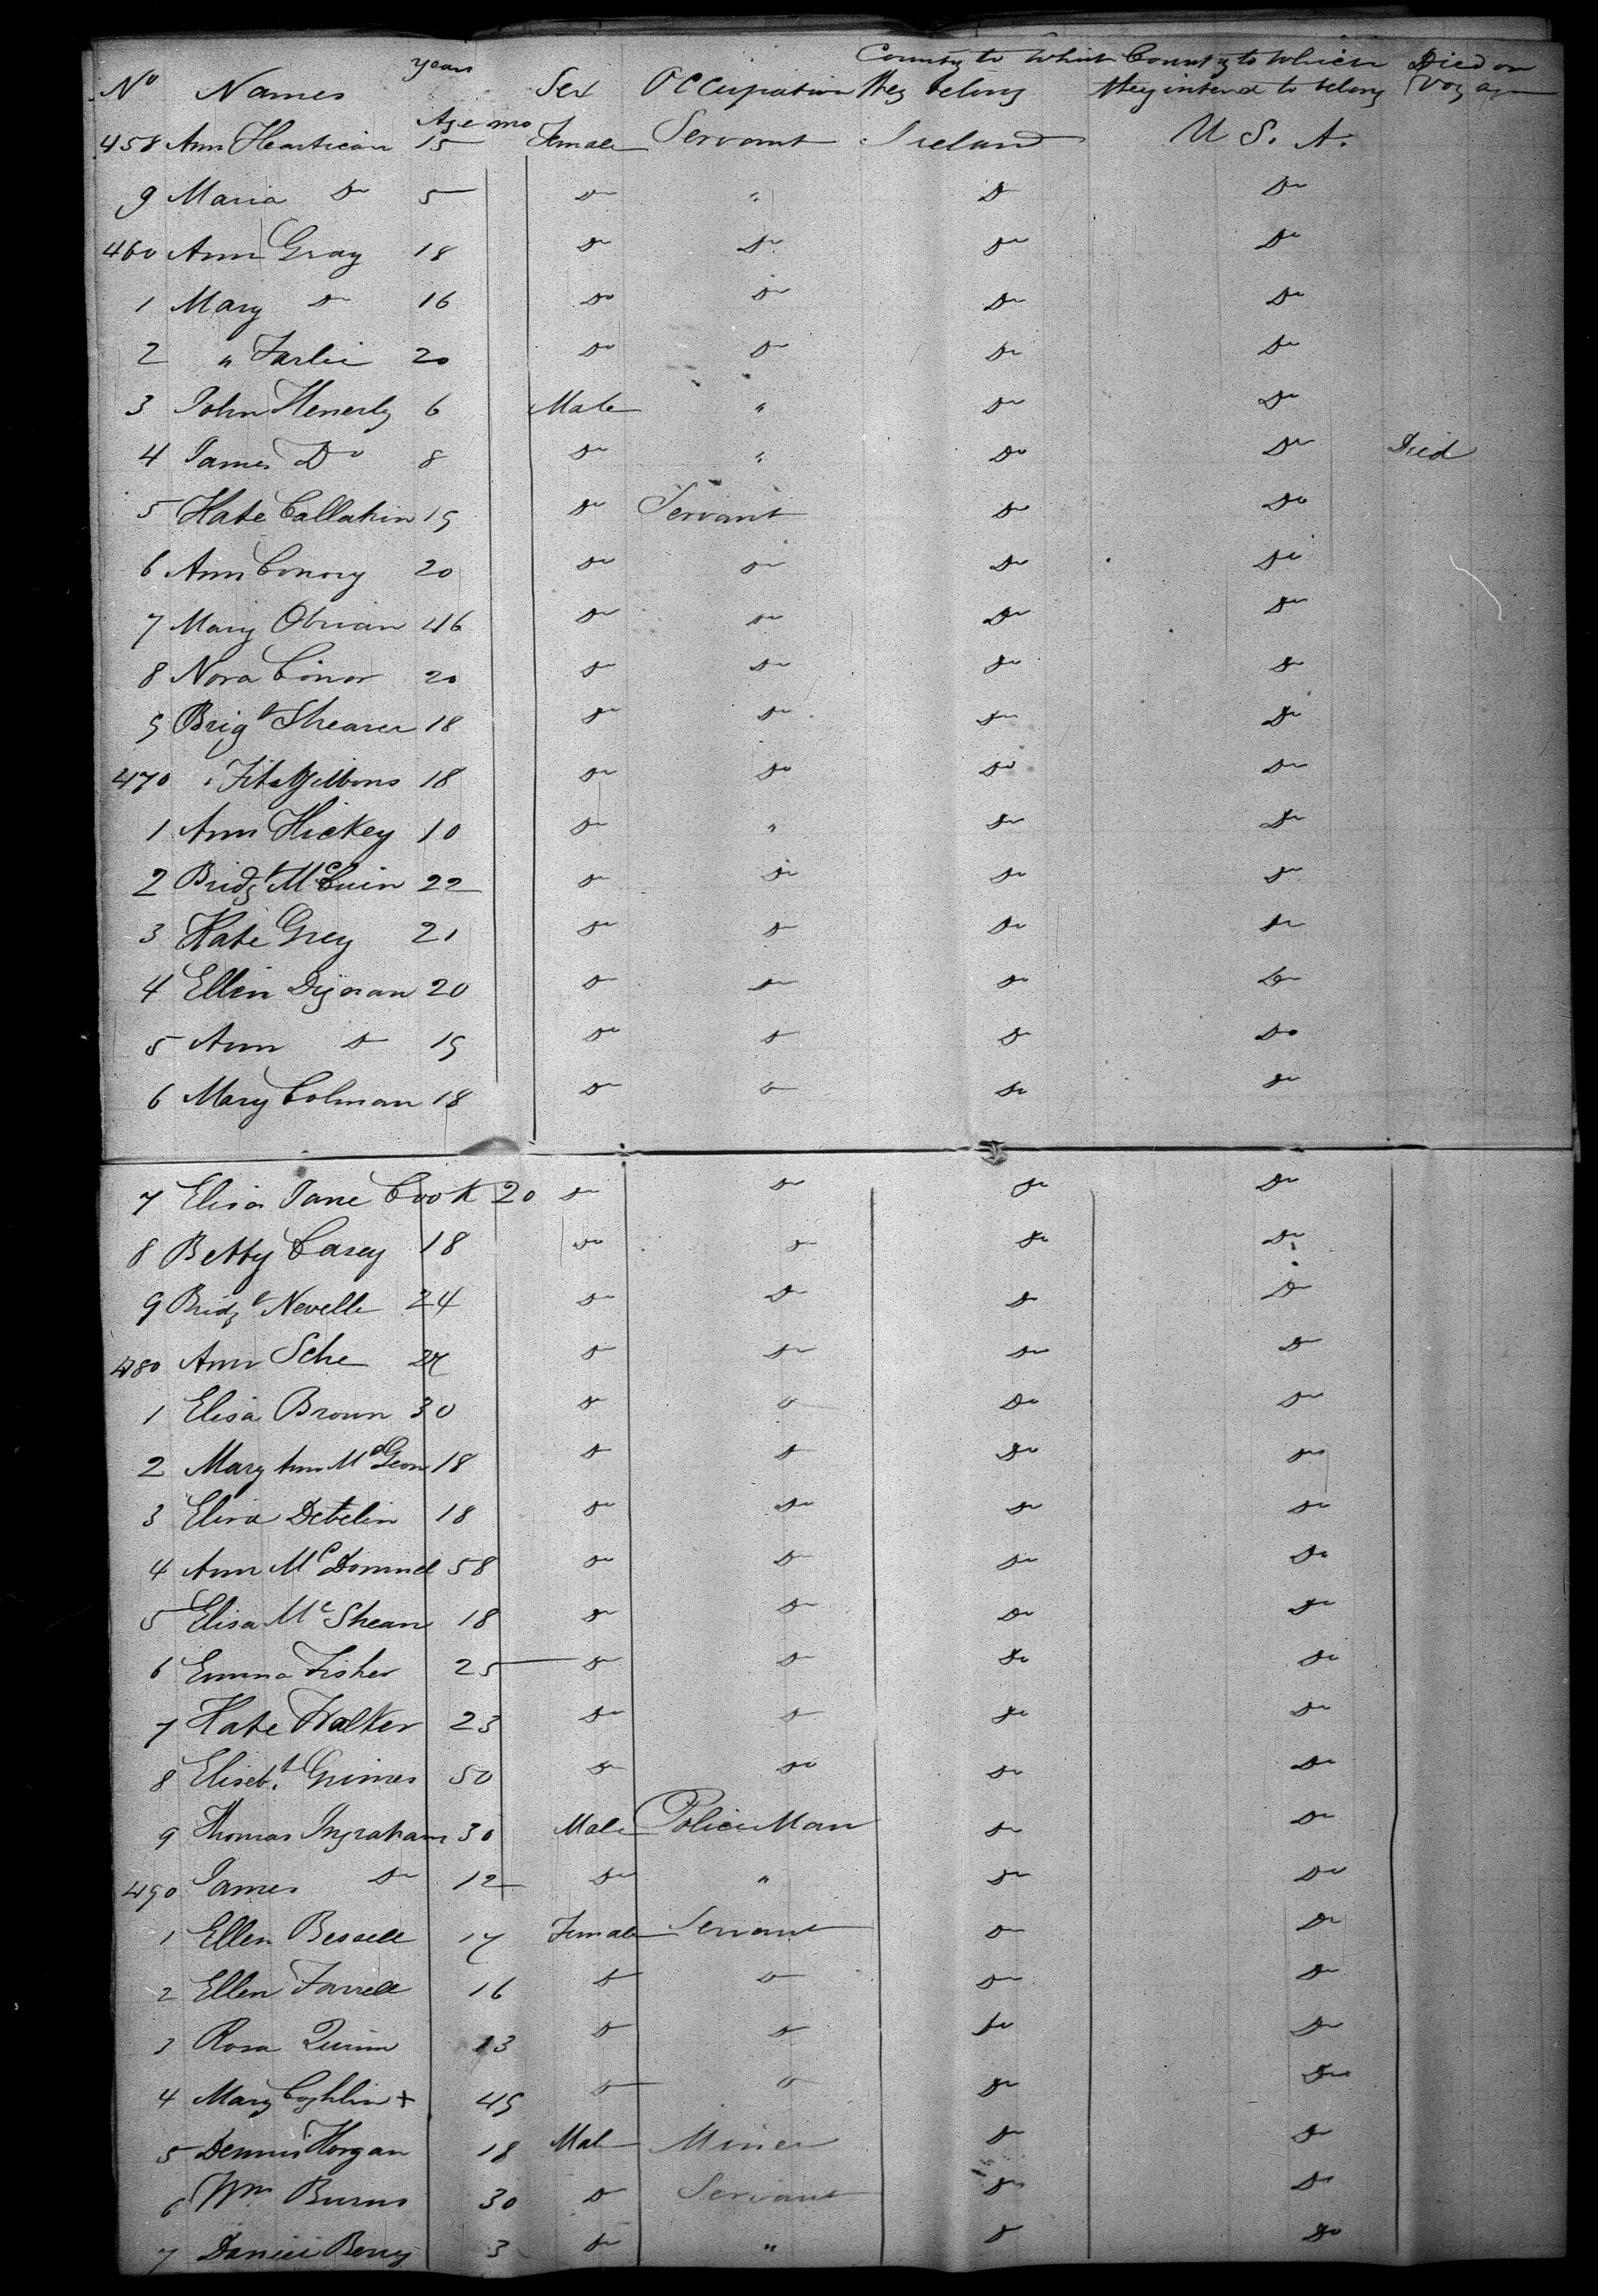 No Names years Age mo Sex Occupation Country to Which they belong Country to Which they intend to belong Died on Voyage
458 Ann Heartican 15 Female Servant Ireland U S. A.
9 Maria Do 5 Do " Do Do
460 Ann Gray 18 Do Do Do Do
1 Mary Do 16 Do Do Do Do
2 " Farlie 20 Do Do Do Do
3 John Henerly 6 Male " Do Do
4 James Do 8 Do " Do Do Died
5 Kate Callahin 19 Do Servant Do Do
6 Ann Conory 20 Do Do Do Do
7 Mary Obrian 46 Do Do Do Do
8 Nora Conor 20 Do Do Do Do
9 Brigt Shearer 18 Do Do Do Do
470 " Fitzgibbons 18 Do Do Do Do
1 Ann Hickey 10 Do " Do Do
2 Bridgt McCuin 22 Do Do Do Do
3 Kate Grey 21 Do Do Do Do
4 Ellen Dignan 20 Do Do Do Do
5 Ann Do 19 Do Do Do Do
6 Mary Colman 18 Do Do Do Do
7 Elisa Jane Cook 20 Do Do Do Do
8 Betty Casey 18 Do Do Do Do
9 Bridgt Nevelle 24 Do Do Do Do
480 Ann Sche Do Do Do Do
1 Elisa Brown 30 Do Do Do Do
2 Mary Ann McGeon 18 Do Do Do Do
3 Elisa Debelin 18 Do Do Do Do
4 Ann McDonnel 58 Do Do Do Do
5 Elisa McShean 18 Do Do Do Do
6 Emma Fisher 25 Do Do Do Do
7 Kate Walker 23 Do Do Do Do
8 Elisebt. Grimes 50 Do Do Do Do
9 Thomas Ingraham 30 Male Police Man Do Do
490 James Do 12 Do " Do Do
1 Ellen Bessell 17 Female Servant Do Do
2 Ellen Farrell 16 Do Do Do Do
3 Rosa Quinn 13 Do Do Do Do
4 Mary Coghlin + 45 Do Do Do Do
5 Dennis Horgan 18 Male Miner Do Do
6 Wm Burns 30 Do Servant Do Do
7 Daniel Berry 3 Do " Do Do